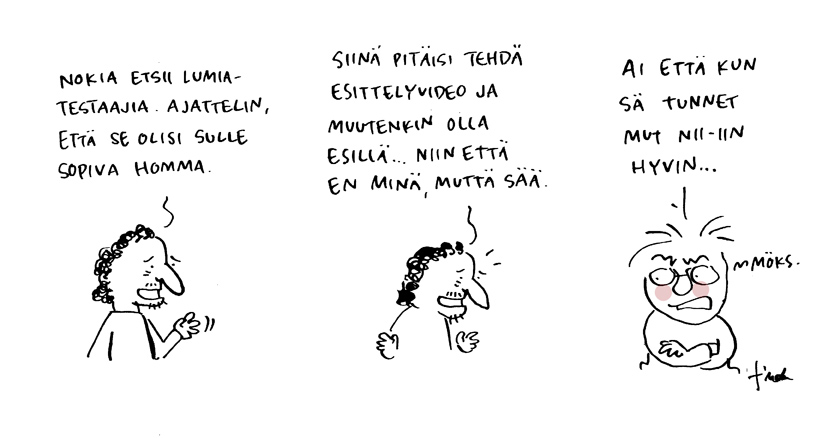 NOKIA ETSII LUMIA-
TESTAAJIA. AJATTELIN,
ETTÄ SE OLISI SULLE
SOPIVA HOMMA.
SIINÄ PITÄISI TEHDÄ
ESITTELYVIDEO JA
MUUTENKIN OLLA
ESILLÄ... NIIN ETTÄ
EN MINÄ, MUTTA SÄÄ.
AI ETTÄ KUN
SÄ TUNNET
MUT NII-IIN
HYVIN...
MÖKS.